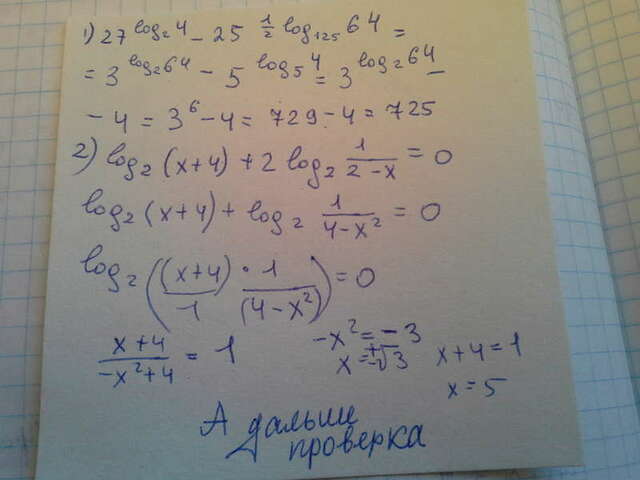 1) 27^(log₂4) - 25^(½ log₁₂₅64) =
= 3^(log₂64) - 5^(log₅4) = 3^(log₂64) -
- 4 = 3⁶ - 4 = 729 - 4 = 725
2) log₂(x+4) + 2 log₂ 1/(2-x) = 0
log₂(x+4) + log₂ 1/(4-x²) = 0
log₂((x+4)/1 · 1/(4-x²)) = 0
(x+4)/(-x²+4) = 1
-x² = -3
x = ±√3
x+4 = 1
x = 5
А дальше
проверка